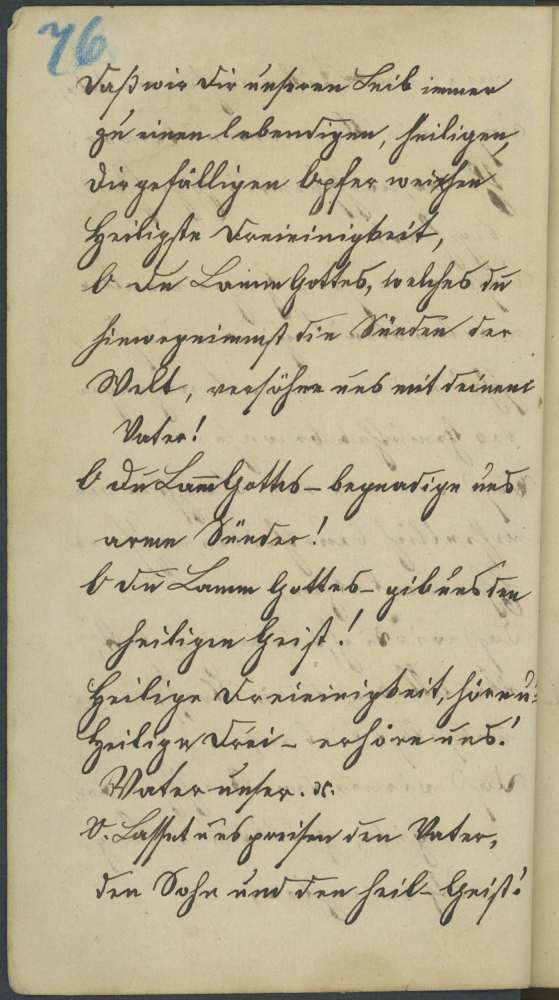 76
Daß wir dir unseren Leib immer
zu einen lebendigen, heiligen,
dir gefälligen Opfer weihen
Heiligste Dreieinigkeit,
O du Lamm Gottes, welches du
hinwegnimmst die Sünden der
Welt, versöhne uns mit deinem
Vater!
O du Lam̅ Gottes – begnadige uns
arme Sünder!
O du Lamm Gottes – gib uns den
heiligen Geist!
Heilige Dreieinigkeit, höre u:
Heilige Drei – erhöre uns!
Vater unser. x.
V. Lasset uns preisen den Vater,
den Sohn und den heil– Geist!